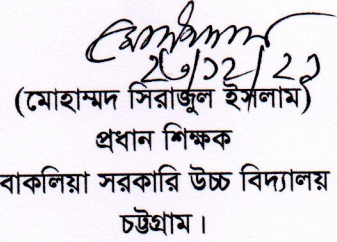 (মোহাম্মদ সিরাজুল ইসলাম)
প্রধান শিক্ষক
বাকলিয়া সরকারি উচ্চ বিদ্যালয়
চট্টগ্রাম।